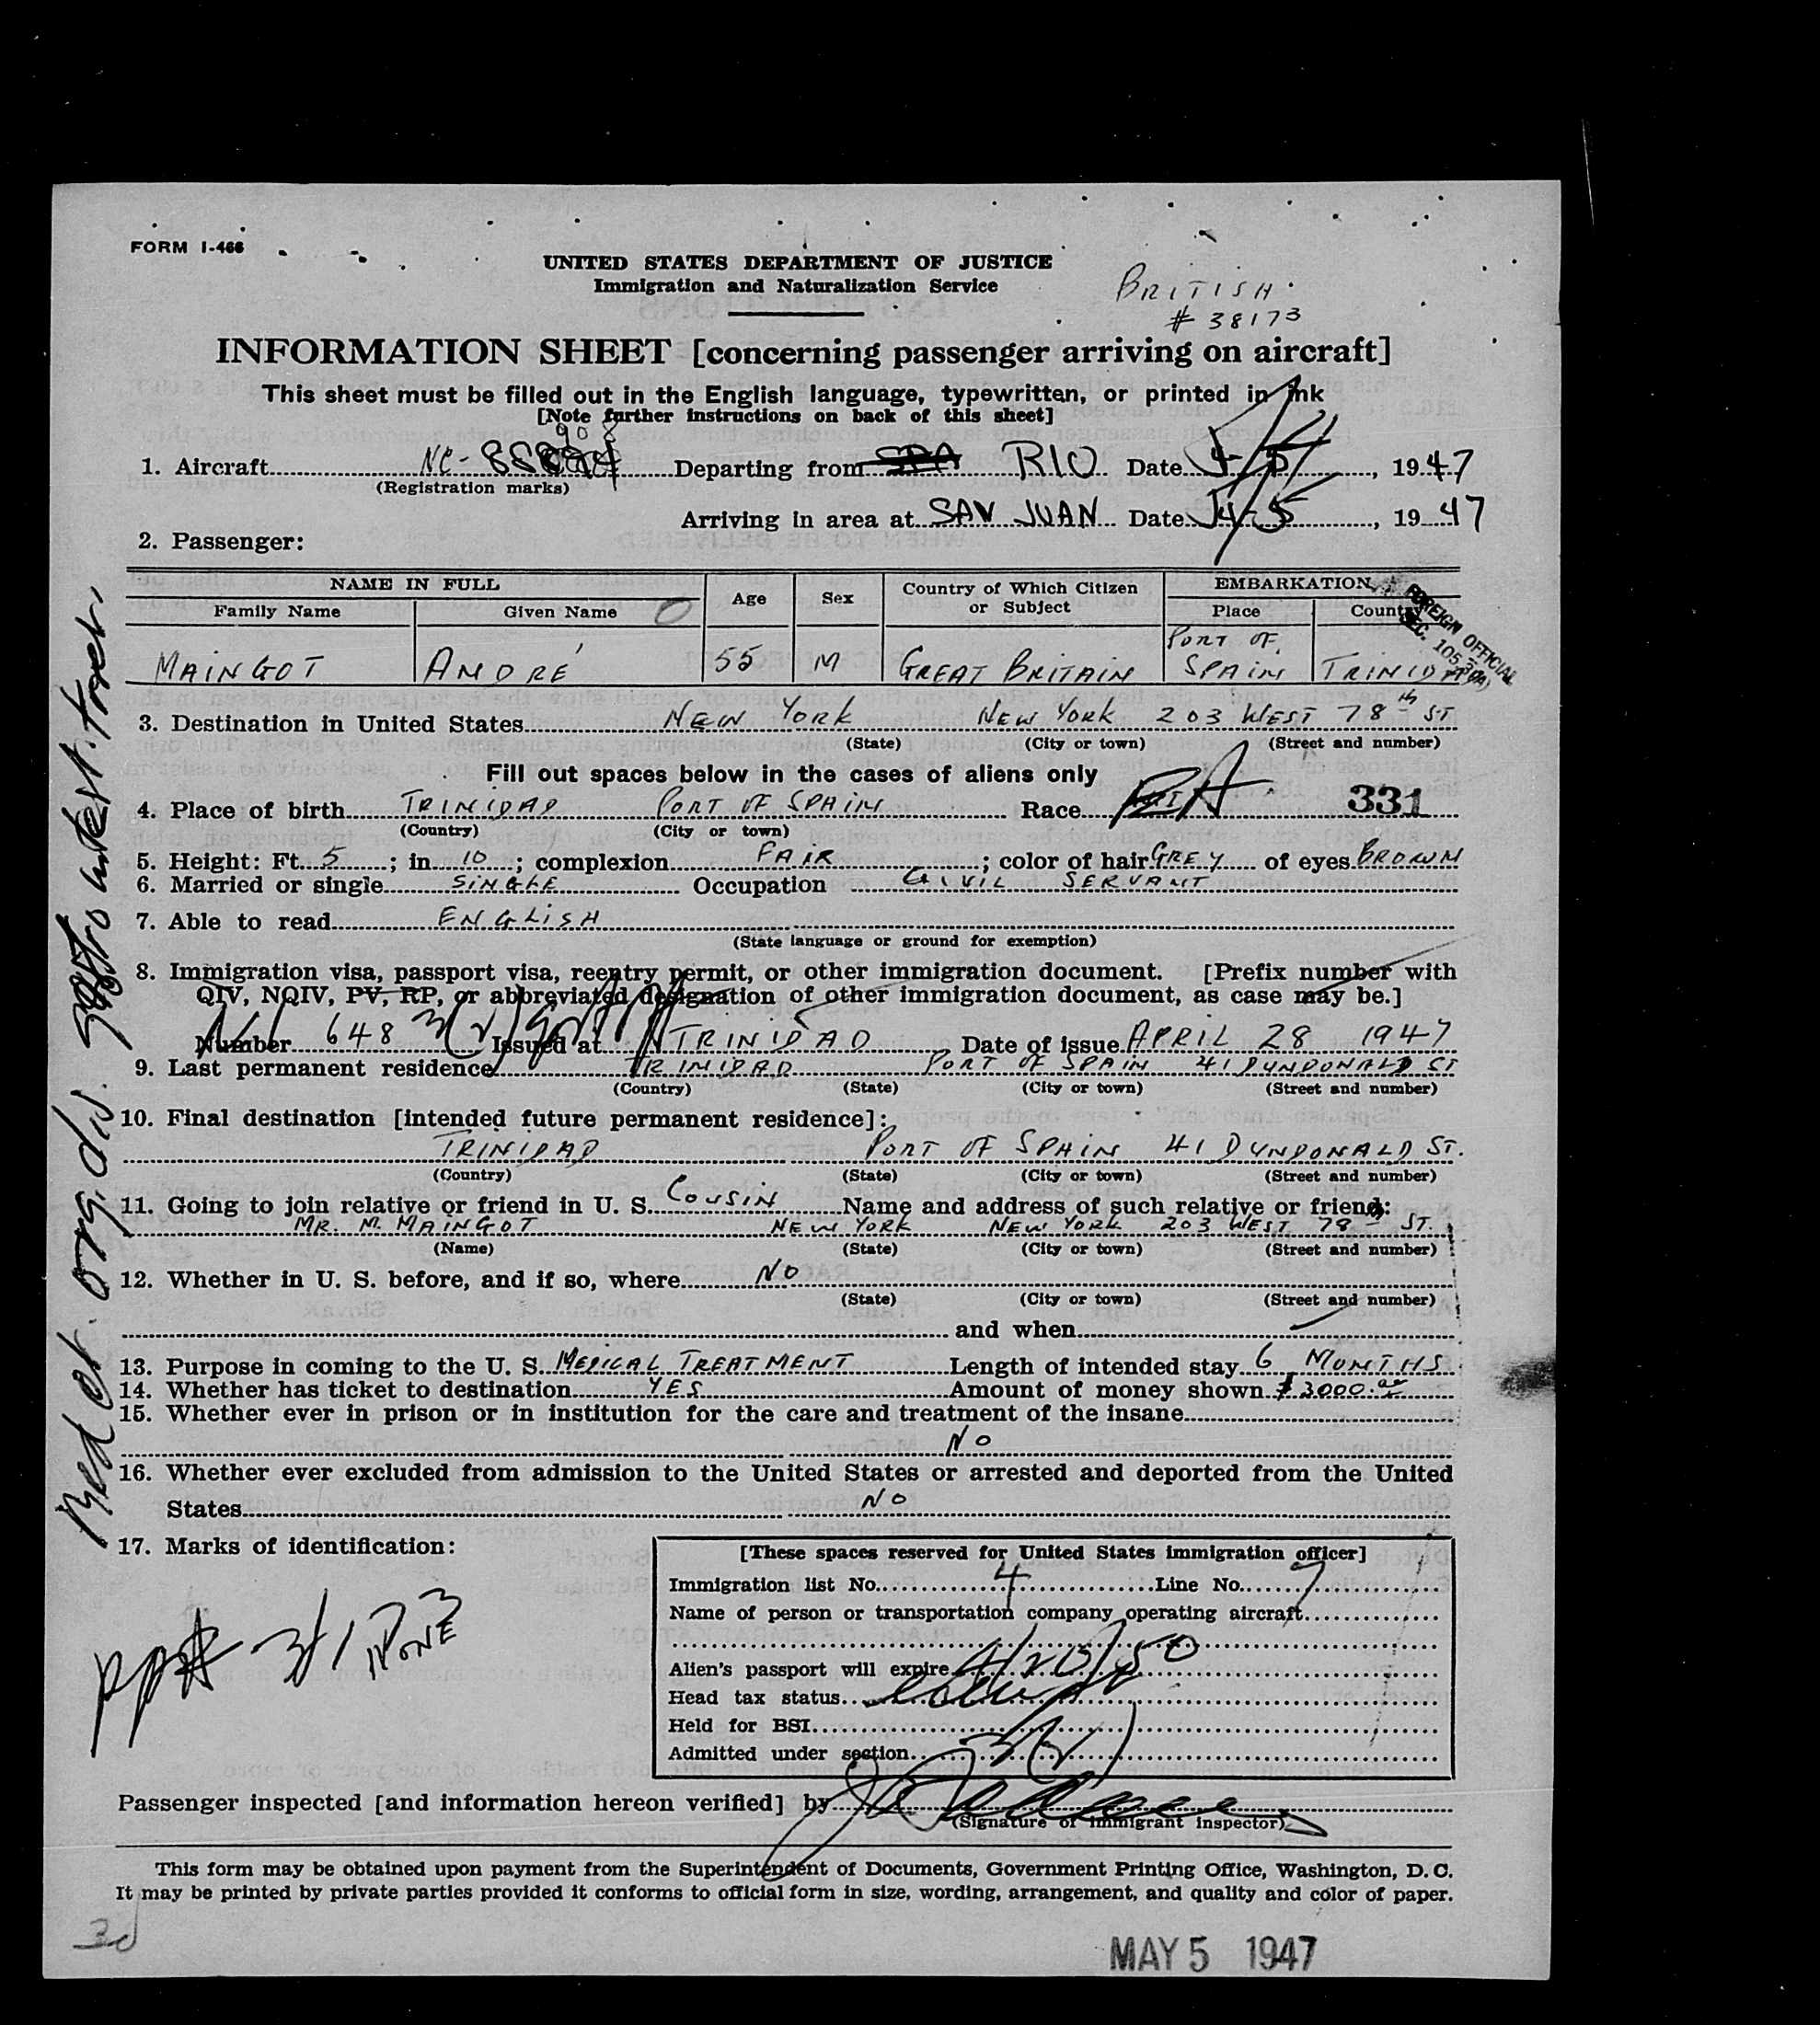 FORM I-466
UNITED STATES DEPARTMENT OF JUSTICE
Immigration and Naturalization Service
BRITISH.
# 38173
INFORMATION SHEET [concerning passenger arriving on aircraft]
This sheet must be filled out in the English language, typewritten, or printed in ink
[Note further instructions on back of this sheet]
908
1. Aircraft NC-88 Departing from RIO Date 5, 1947
(Registration marks)
Arriving in area at SAN JUAN Date 5, 1947
2. Passenger:
NAME IN FULL Age Sex Country of Which Citizen or Subject EMBARKATION
Family Name Given Name Place Country
FOREIGN OFFICIAL
SEC. 105.3
MAINGOT ANDRÉ 55 M GREAT BRITAIN PORT OF SPAIN TRINIDAD
3. Destination in United States NEW YORK NEW YORK 203 WEST 78th ST
(State) (City or town) (Street and number)
Fill out spaces below in the cases of aliens only
4. Place of birth TRINIDAD PORT OF SPAIN Race 331
(Country) (City or town)
5. Height: Ft. 5; in. 10; complexion FAIR; color of hair GREY of eyes BROWN
6. Married or single SINGLE Occupation CIVIL SERVANT
7. Able to read ENGLISH
(State language or ground for exemption)
8. Immigration visa, passport visa, reentry permit, or other immigration document. [Prefix number with
QIV, NQIV, PV, RP, or abbreviated designation of other immigration document, as case may be.]
Number 648 3(2) Issued at TRINIDAD Date of issue APRIL 28 1947
9. Last permanent residence TRINIDAD PORT OF SPAIN 41 DUNDONALD ST
(Country) (State) (City or town) (Street and number)
10. Final destination [intended future permanent residece]:
TRINIDAD PORT OF SPAIN 41 DUNDONALD ST.
(Country) (State) (City or town) (Street and number)
11. Going to join relative or friend in U. S. COUSIN Name and address of such relative or friend:
MR. M. MAINGOT NEW YORK NEW YORK 203 WEST 78th ST.
(Name) (State) (City or town) (Street and number)
12. Whether in U. S. before, and if so, where NO
(State) (City or town) (Street and number)
and when
13. Purpose in coming to the U. S. MEDICAL TREATMENT Length of intended stay 6 MONTHS
14. Whether has ticket to destination YES Amount of money shown $3000.00
15. Whether ever in prison or in institution for the care and treatment of the insane
NO
16. Whether ever excluded from admission to the United States or arrested and deported from the United
States NO
17. Marks of identification:
NONE
[These spaces reserved for United States immigration officer]
Immigration list No. 4 Line No. 7
Name of person or transportation company operating aircraft
Alien's passport will expire 4/20/50
Head tax status
Held for BSI
Admitted under section 3(2)
Passenger inspected [and information hereon verified] by
(Signature of immigrant inspector)
This form may be obtained upon payment from the Superintendent of Documents, Government Printing Office, Washington, D. C.
It may be printed by private parties provided it conforms to official form in size, wording, arrangement, and quality and color of paper.
MAY 5 1947